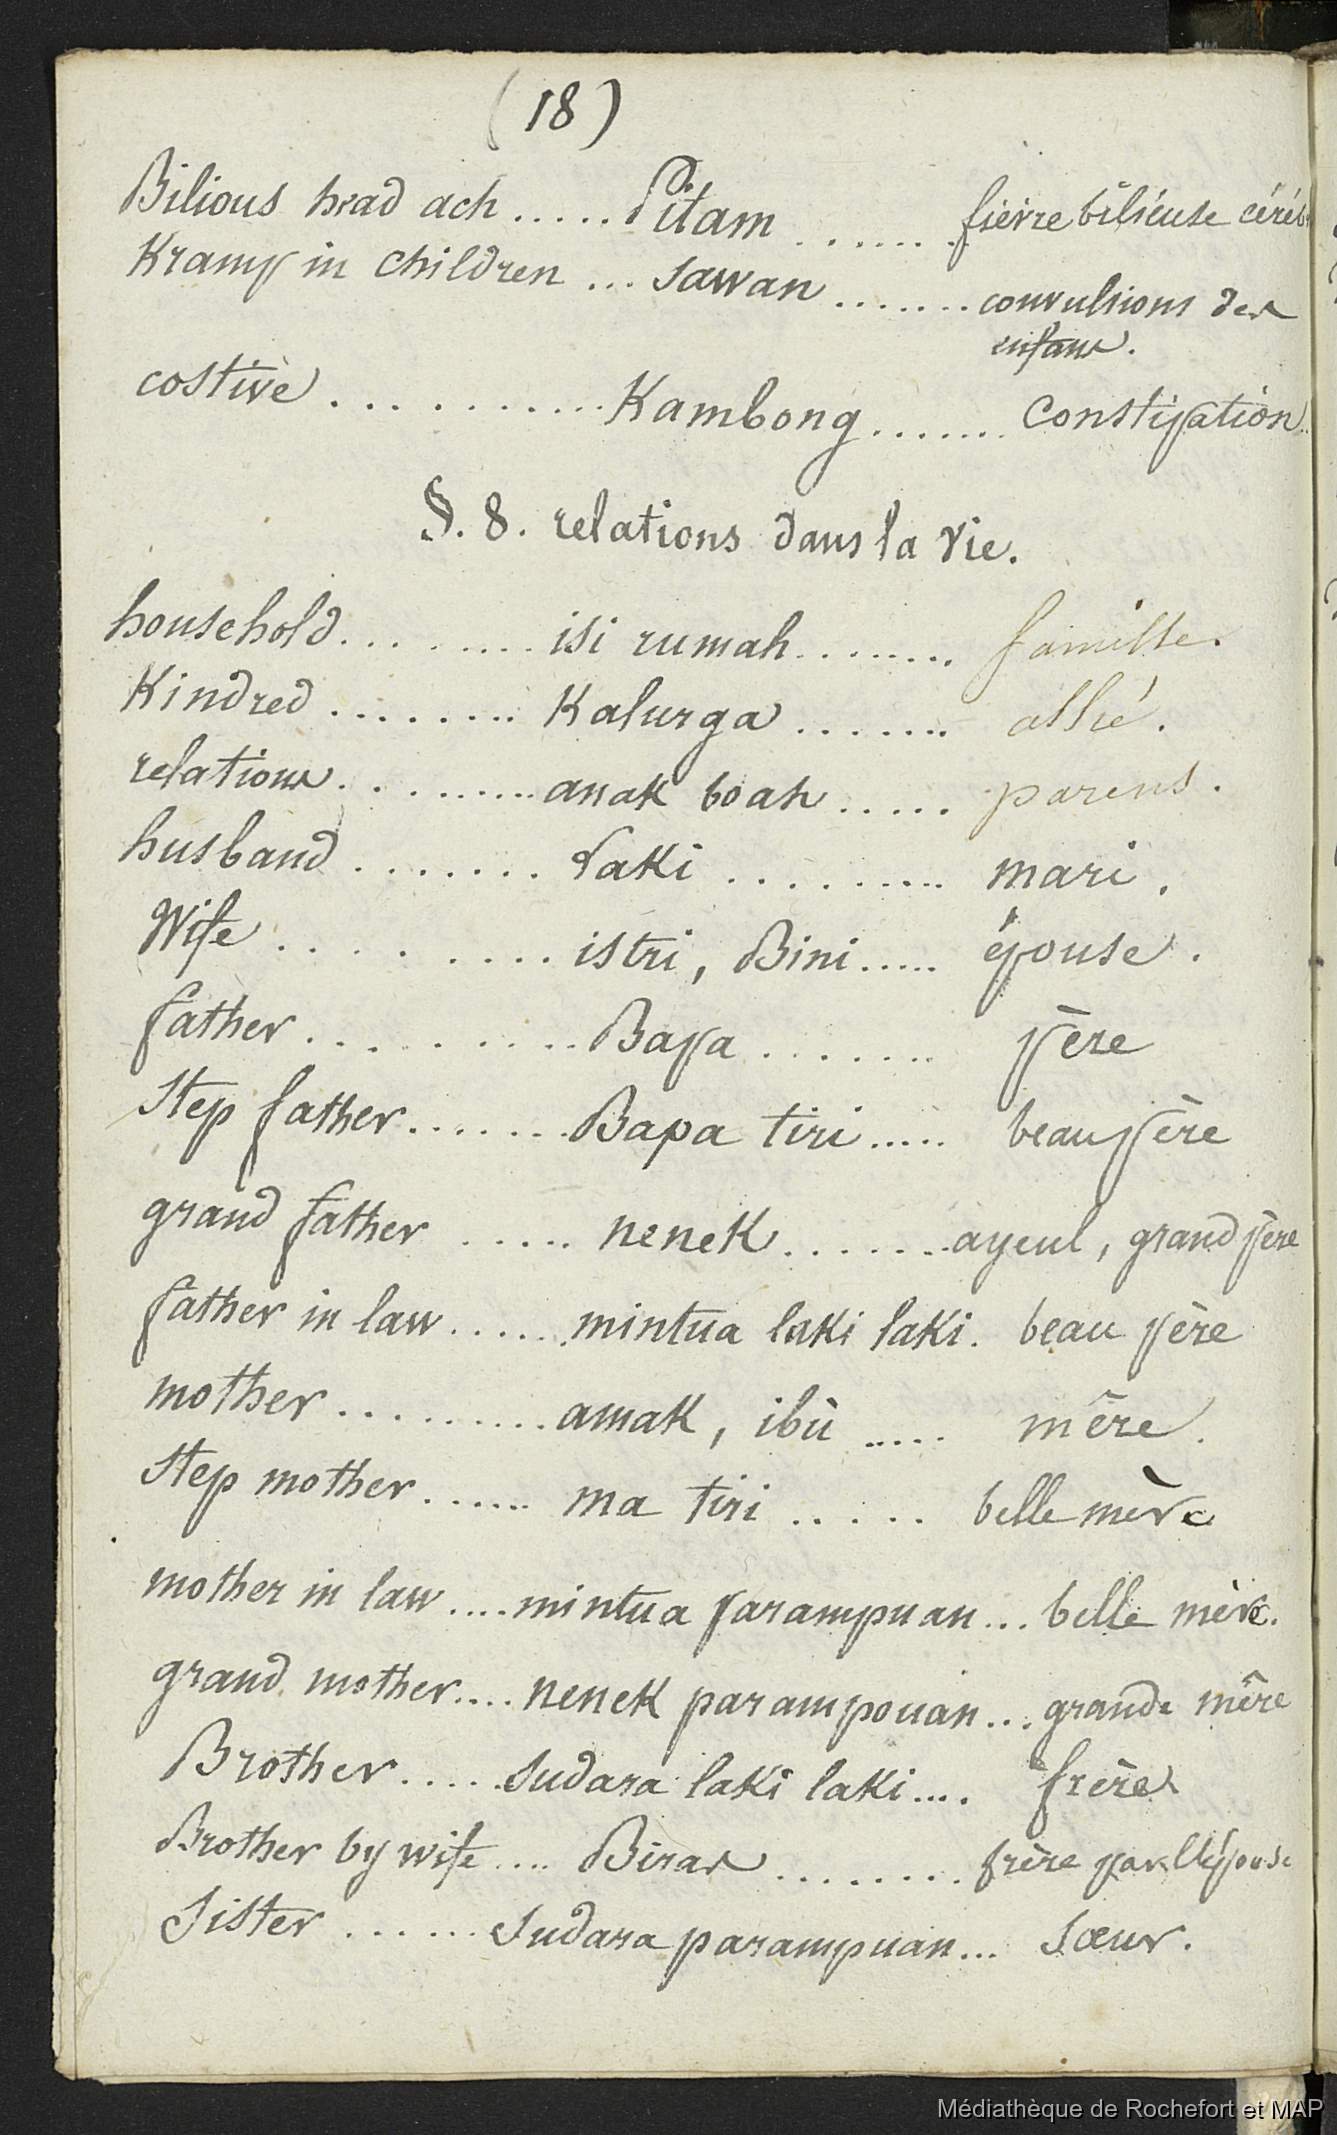 (18)
Bilious head ach ..... Pitam ....... fièvre biliéuse céréb
Kramp in children ... sawan ....... convulsions des
enfans.
costive ........... Kambong ....... Constipation
§. 8. relations dans la vie.
household ......... isi rumah ........ famille.
Kindred ........ Kalurga ....... allié.
relations ......... anak boah ..... parens.
husband ....... Laki ......... mari.
Wife ........ istri, Bini ..... épouse.
father ......... Bapa ....... père
Step father ....... Bapa tiri ..... beau père
grand father ...... nenek ....... ayeul, grand père
father in law ..... mintua laki laki. beau père
mother ......... amak, ibù ..... mère.
Step mother ...... ma tiri ..... belle mère
mother in law .... mintua parampuan ... belle mère.
grand mother .... nenek parampouan ... grande mère
Brother ..... Sudara laki laki .... frère
Brother by wife .... Biras ........ frère par l'épouse
Sister ...... Sudara parampuan ... Sœur.
Médiathèque de Rochefort et MAP